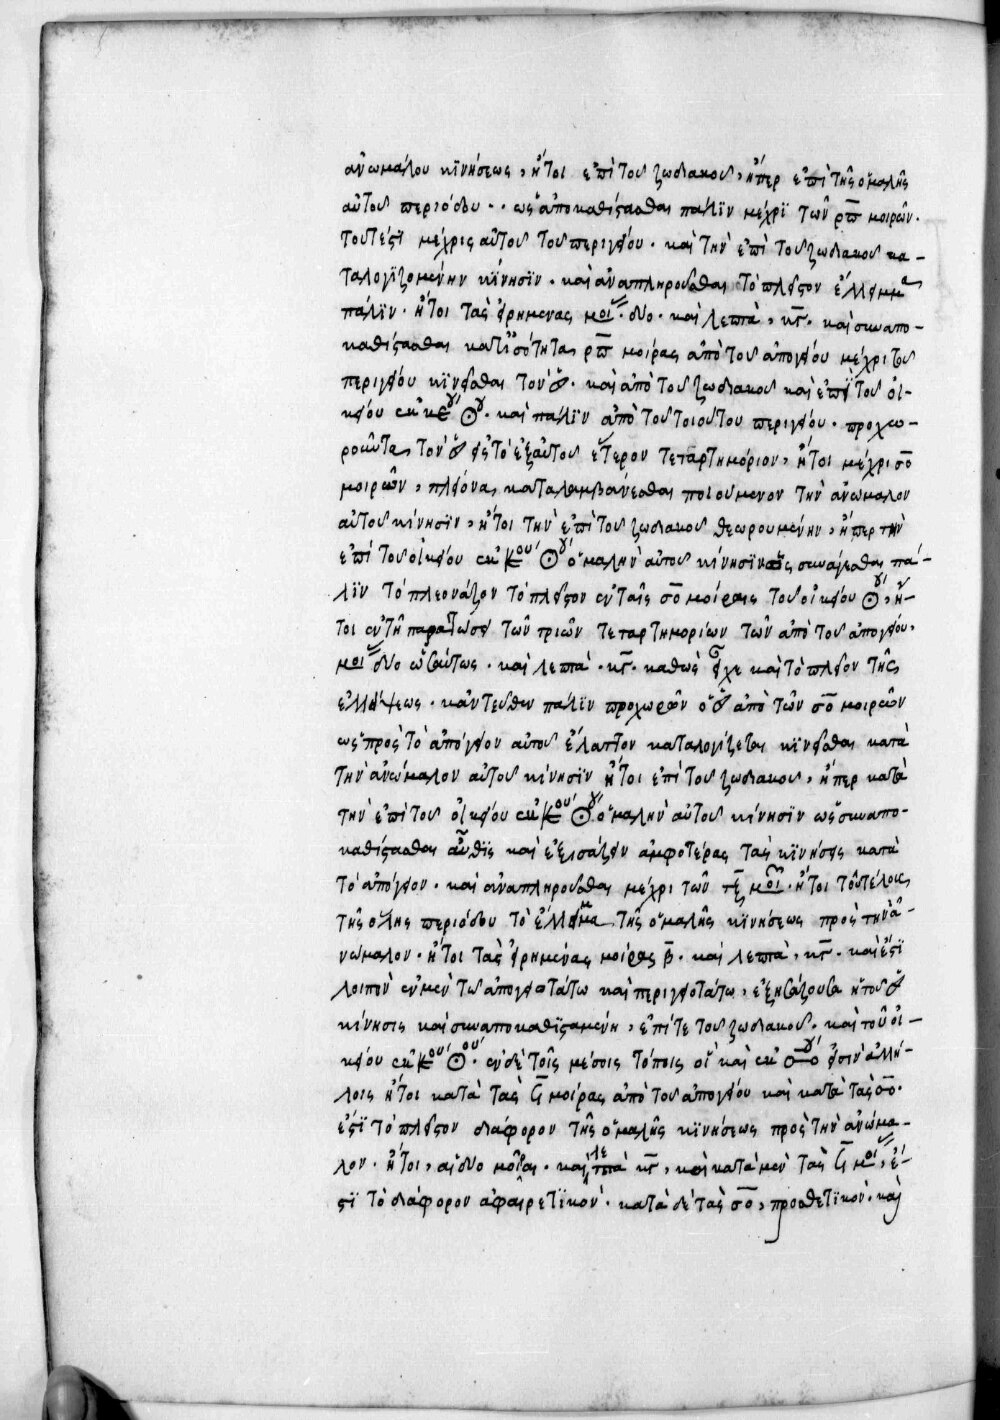 ἀνωμάλου κϊνήσεως, ἤτοι ἐπὶ τοῦ ζωδιακοῦ, ἤπερ ἐπὶ τῆς ὁμαλῆς
αὐτοῦ περιόδου · · ὡς ἀποκαθίστασθαι πάλϊν μέχρϊ τῶν ρπ μοιρῶν ·
τουτέστϊ μέχρις αὐτοῦ τοῦ περιγείου · καὶ τὴν ἐπὶ τοῦ ζωδιακοῦ κα-
ταλογϊζομένην κίνησϊν · καὶ ἀναπληροῦσθαι τὸ πλεῖστον ἔλλειμμα
πάλϊν · ἤτοι τὰς εἰρημένας μοι δύο · καὶ λεπτὰ, κγ · καὶ συναπο-
καθίστασθαι κατϊσότητας ρπ μοίρας ἀπὸ τοῦ ἀπογείου μέχρι τοῦ
περιγείου κϊνεῖσθαι τὸν ☉ · καὶ ἀπὸ τοῦ ζωδιακοῦ καὶ ἐπὶ τοῦ οἰ-
κείου ἐκκε · καὶ πάλϊν ἀπὸ τοῦ τοιούτου περιγείου · προχω-
ροῦντα τὸν εἰς τὸ ἑξαυτοῦ ἕτερον τεταρτημόριον, ἤτοι μέχρι σο
μοιρῶν, πλείονας καταλαμβάνεσθαι ποιούμενον τὴν ἀνώμαλον
αὐτοῦ κίνησϊν, ἤτοι τὴν ἐπὶ τοῦ ζωδιακοῦ θεωρουμένην, ἤπερ τὴν
ἐπὶ τοῦ οἰκείου ἐκκου ☉ ὁμαλὴν αὐτοῦ κίνησϊν ὡς συνάγεσθαι πά-
λϊν τὸ πλεονάζον τὸ πλεῖστον ἐν ταῖς σο μοίραις τοῦ οἰκείου ☉, ἤ-
τοι ἐν τῇ παρατώσει τῶν τριῶν τεταρτημορίων τῶν ἀπὸ τοῦ ἀπογείου,
μοι δύο ὡσαύτως · καὶ λεπτὰ · κγ · καθὼς εἶχε καὶ τὸ πλεῖον τῆς
ἐλλείψεως · κἀντεῦθεν πάλϊν προχωρῶν ὁ ἀπὸ τῶν σο μοιρῶν
ὡς πρὸς τὸ ἀπόγειον αὐτοῦ ἔλαττον καταλογίζεται κϊνεῖσθαι κατὰ
τὴν ἀνώμαλον αὐτοῦ κίνησϊν ἤτοι ἐπὶ τοῦ ζωδιακοῦ, ἤπερ κατὰ
τὴν ἐπὶ τοῦ οἰκείου ἐκκου ☉ ὁμαλὴν αὐτοῦ κίνησϊν ὡς συναπο-
καθίστασθαι αὖθϊς καὶ ἐξισάζειν ἀμφοτέρας τὰς κϊνήσεις κατὰ
τὸ ἀπόγειον · καὶ ἀναπληροῦσθαι μέχρι τῶν τξ μοι · ἤτοι τοῦ τέλους
τῆς ὅλης περιόδου τὸ ἔλλειμμα τῆς ὁμαλῆς κϊνήσεως πρὸς τὴν ἀ-
νώμαλον · ἤτοι τὰς εἰρημένας μοίρας β · καὶ λεπτὰ, κγ · καὶ ἔστϊ
λοιπὸν ἐν μὲν τῶ ἀπογειοτάτω καὶ περιγειοτάτω, ἐξϊσάζουσα ἡ τοῦ
κίνησις καὶ συναποκαθϊσταμένη, ἐπί τε τοῦ ζωδιακοῦ · καὶ τοῦ οἰ-
κείου ἐκκου ☉ · ἐν δὲ τοῖς μέσοις τόποις οἳ καὶ ἐκ εἰσὶν ἀλλή-
λοις ἤτοι κατὰ τὰς ϟ μοίρας ἀπὸ τοῦ ἀπογείου καὶ κατὰ τὰς σο ·
ἔστϊ τὸ πλεῖστον διάφορον τῆς ὁμαλῆς κϊνήσεως πρὸς τὴν ἀνώμα-
λον · ἤτοι, αἱ δύο μοῖραι · καὶ λεπτὰ κγ, καὶ κατὰ μὲν τὰς ϟ μοι, ἔ-
στϊ τὸ διάφορον ἀφαιρετϊκόν · κατὰ δὲ τὰς σο, προσθετϊκόν · καὶ